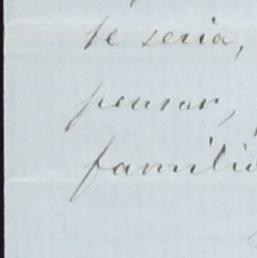 te seria,
pensar,
famili